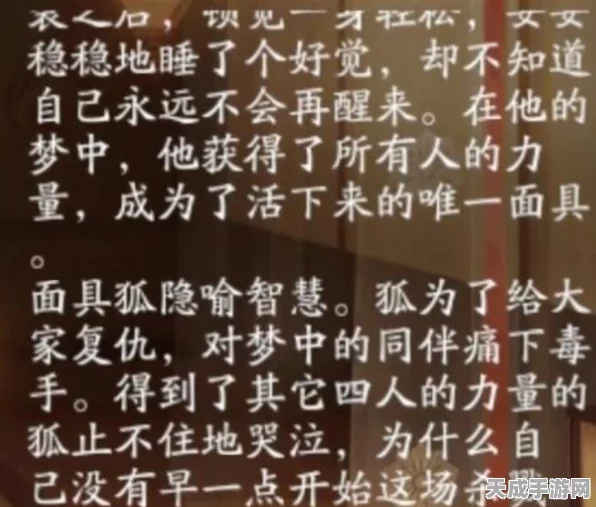 袭之后，顿觉一身轻松，安安
稳稳地睡了个好觉，却不知道
自己永远不会再醒来。在他的
梦中，他获得了所有人的力
量，成为了活下来的唯一面具
。
面具狐隐喻智慧。狐为了给大
家复仇，对梦中的同伴痛下毒
手。得到了其它四人的力量的
狐止不住地哭泣，为什么自
己没有早一点开始这场杀
天成手游网